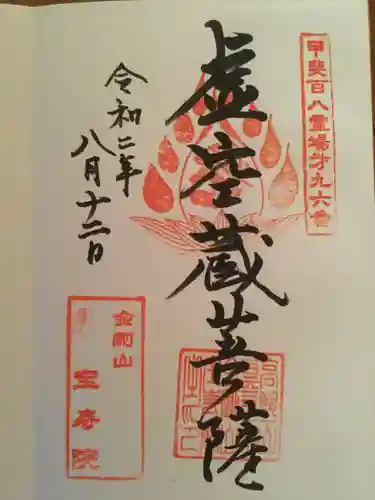 甲斐百八霊場第九六番
虚空蔵菩薩
令和二年
八月十二日
金剛山
宝寿院